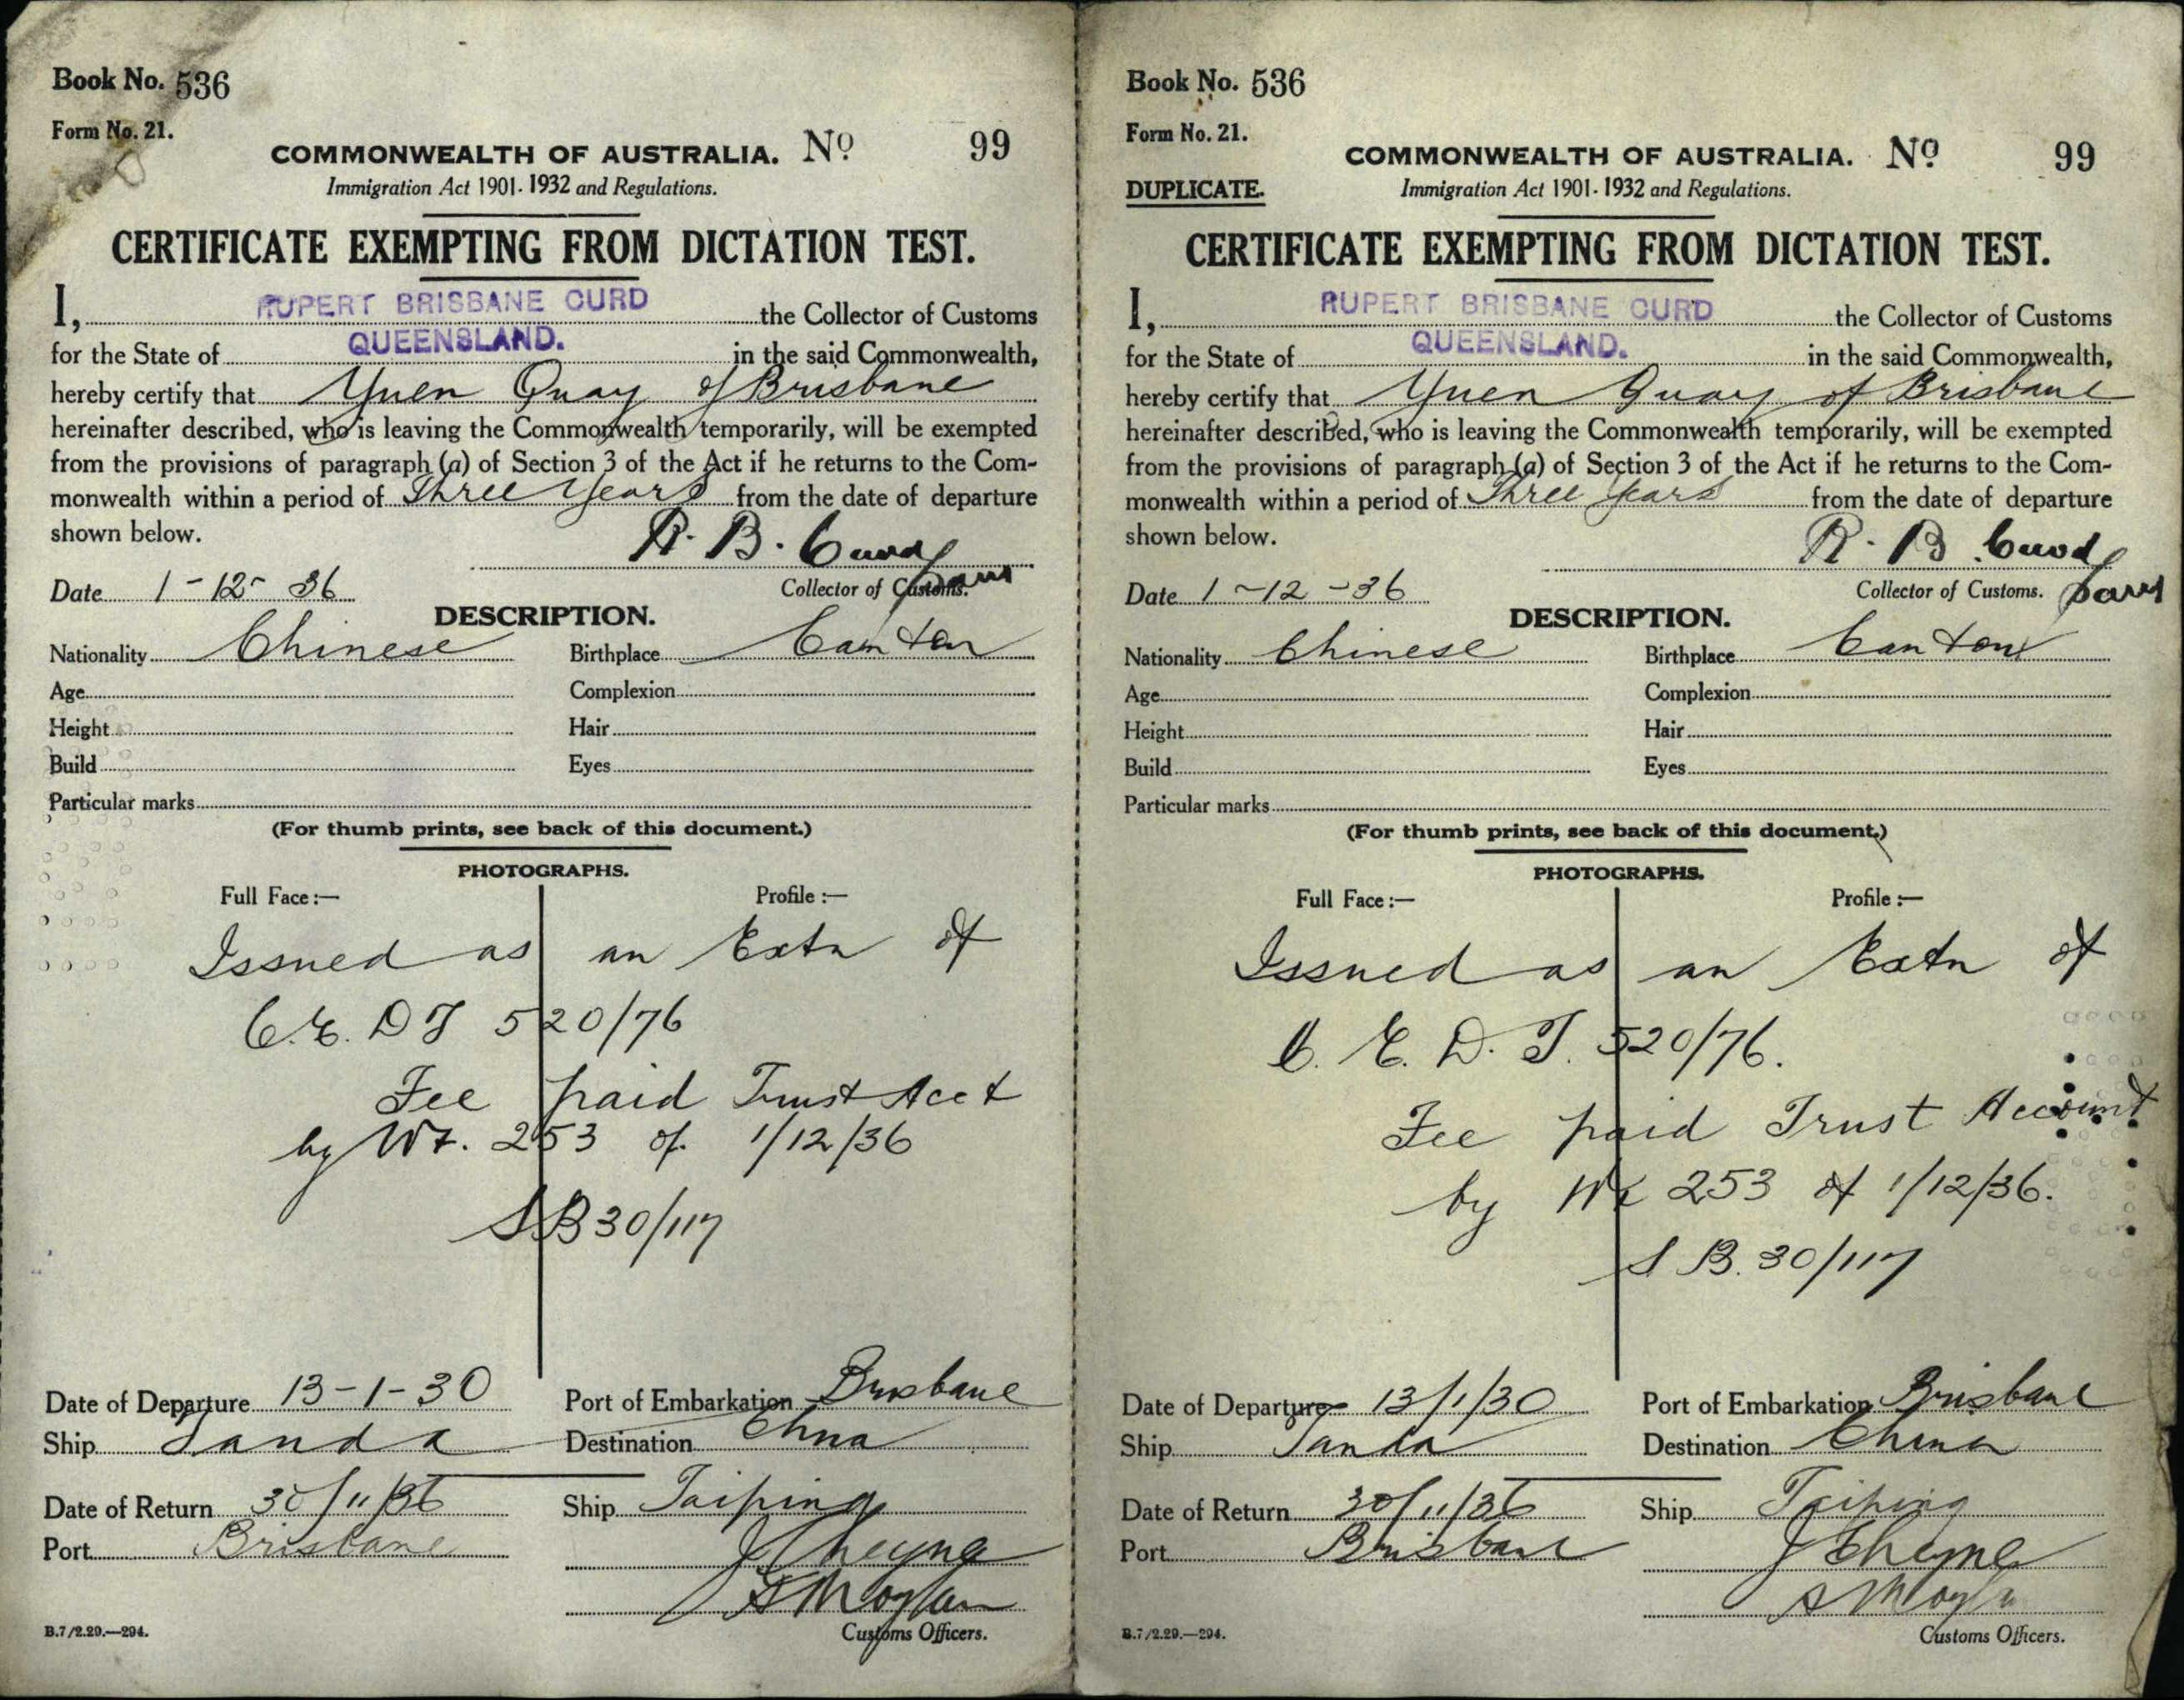 Book No. 536
Form No. 21.
COMMONWEALTH OF AUSTRALIA. No. 99
Immigration Act 1901-1932 and Regulations.
CERTIFICATE EXEMPTING FROM DICTATION TEST.
I, RUPERT BRISBANE CURD the Collector of Customs
for the State of QUEENSLAND. in the said Commonwealth,
hereby certify that Yuen Quay of Brisbane
hereinafter described, who is leaving the Commonwealth temporarily, will be exempted
from the provisions of paragraph (a) of Section 3 of the Act if he returns to the Com-
monwealth within a period of Three Years from the date of departure
shown below.
R. B. Curd
Date 1-12-36 Collector of Customs.
DESCRIPTION.
Nationality Chinese Birthplace Canton
Age Complexion
Height Hair
Build Eyes
Particular marks
(For thumb prints, see back of this document.)
PHOTOGRAPHS.
Full Face:— Profile:—
Issued as an Extn of
C.E.D T 520/76
Fee paid Trust Acct
by Wt. 253 of 1/12/36
S B 30/117
Date of Departure 13-1-30 Port of Embarkation Brisbane
Ship Tanda Destination China
Date of Return 30/11/36 Ship Taiping
Port Brisbane J Cheyne
Customs Officers.
B.7/2.29.—294.
Book No. 536
Form No. 21.
COMMONWEALTH OF AUSTRALIA. No. 99
DUPLICATE.
Immigration Act 1901-1932 and Regulations.
CERTIFICATE EXEMPTING FROM DICTATION TEST.
I, RUPERT BRISBANE CURD the Collector of Customs
for the State of QUEENSLAND. in the said Commonwealth,
hereby certify that Yuen Quay of Brisbane
hereinafter described, who is leaving the Commonwealth temporarily, will be exempted
from the provisions of paragraph (a) of Section 3 of the Act if he returns to the Com-
monwealth within a period of Three Years from the date of departure
shown below.
R. B. Curd
Date 1-12-36 Collector of Customs.
DESCRIPTION.
Nationality Chinese Birthplace Canton
Age Complexion
Height Hair
Build Eyes
Particular marks
(For thumb prints, see back of this document.)
PHOTOGRAPHS.
Full Face:— Profile:—
Issued as an Extn of
C. E. D. T. 520/76.
Fee paid Trust Account
by Wt 253 of 1/12/36.
S B. 30/117
Date of Departure 13/1/30 Port of Embarkation Brisbane
Ship Tanda Destination China
Date of Return 30/11/36 Ship Taiping
Port Brisbane J Cheyne
Customs Officers.
B.7/2.29.—294.